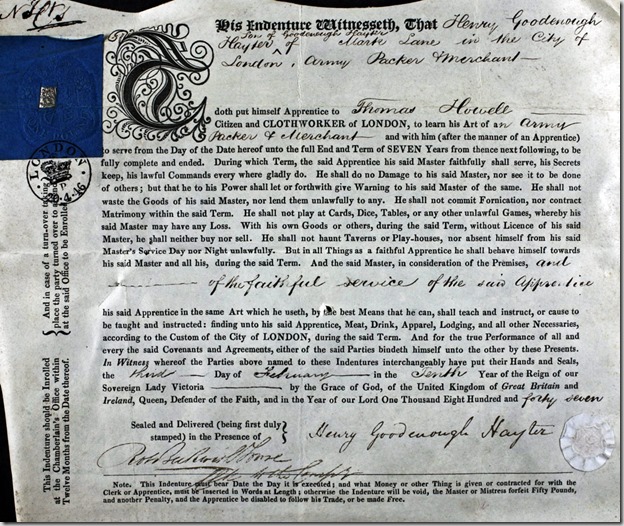 This Indenture Witnesseth, That Henry Goodenough
Son of Goodenough Hayter
Hayter of Mark Lane in the City of
London, Army Packer & Merchant
doth put himself Apprentice to Thomas Howell
Citizen and CLOTHWORKER of LONDON, to learn his Art of an Army
Packer & Merchant and with him (after the manner of an Apprentice)
to serve from the Day of the Date hereof unto the full End and Term of SEVEN Years from thence next following, to be
fully complete and ended. During which Term, the said Apprentice his said Master faithfully shall serve, his Secrets
keep, his lawful Commands every where gladly do. He shall do no Damage to his said Master, nor see it to be done
of others; but that he to his Power shall let or forthwith give Warning to his said Master of the same. He shall not
waste the Goods of his said Master, nor lend them unlawfully to any. He shall not commit Fornication, nor contract
Matrimony within the said Term. He shall not play at Cards, Dice, Tables, or any other unlawful Games, whereby his
said Master may have any Loss. With his own Goods or others, during the said Term, without Licence of his said
Master, he shall neither buy nor sell. He shall not haunt Taverns or Play-houses, nor absent himself from his said
Master's Service Day nor Night unlawfully. But in all Things as a faithful Apprentice he shall behave himself towards
his said Master and all his, during the said Term. And the said Master, in consideration of the Premises, and
of the faithful service of the said Apprentice
his said Apprentice in the same Art which he useth, by the best Means that he can, shall teach and instruct, or cause to
be taught and instructed: finding unto his said Apprentice, Meat, Drink, Apparel, Lodging, and all other Necessaries,
according to the Custom of the City of LONDON, during the said Term. And for the true Performance of all and
every the said Covenants and Agreements, either of the said Parties bindeth himself unto the other by these Presents.
In Witness whereof the Parties above named to these Indentures interchangeably have put their Hands and Seals,
the third Day of February in the Tenth Year of the Reign of our
Sovereign Lady Victoria by the Grace of God, of the United Kingdom of Great Britain and
Ireland, Queen, Defender of the Faith, and in the Year of our Lord One Thousand Eight Hundred and forty seven
Sealed and Delivered (being first duly
stamped) in the Presence of
Henry Goodenough Hayter
Note. This Indenture must bear Date the Day it is executed; and what Money or other Thing is given or contracted for with the
Clerk or Apprentice, must be inserted in Words at Length; otherwise the Indenture will be void, the Master or Mistress forfeit Fifty Pounds,
and another Penalty, and the Apprentice be disabled to follow his Trade, or be made Free.
LONDON
29.4.46
This Indenture should be Enrolled
at the Chamberlain's Office within
Twelve Months from the Date thereof.
And in case of a turn-over taking
place the party turned over to
at the said Office to be Enrolled